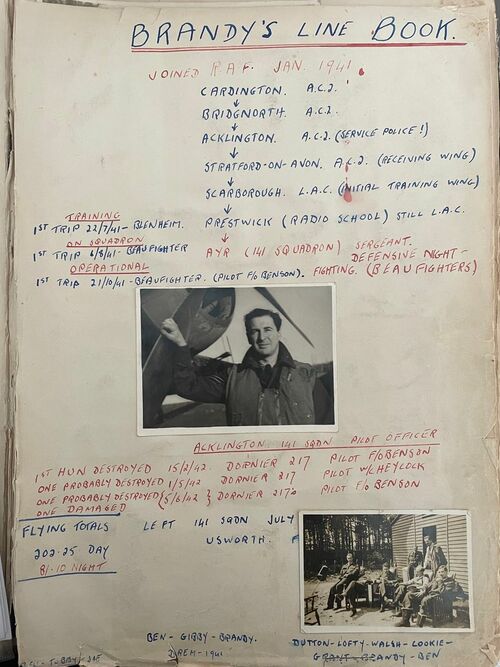 BRANDY'S LINE BOOK.
JOINED RAF. JAN. 1941
CARDINGTON. A.C.2.
BRIDGNORTH. A.C.2.
ACKLINGTON. A.C.2. (SERVICE POLICE!)
STRATFORD-ON-AVON. A.C.2. (RECEIVING WING)
SCARBOROUGH. L.A.C. (INITIAL TRAINING WING)
PRESTWICK (RADIO SCHOOL) STILL L.A.C.
TRAINING
1ST TRIP 22/7/41 - BLENHEIM.
ON SQUADRON
1ST TRIP 6/8/41 - BEAUFIGHTER
AYR (141 SQUADRON) SERGEANT.
DEFENSIVE NIGHT-
FIGHTING. (BEAUFIGHTERS)
OPERATIONAL
1ST TRIP 21/10/41 - BEAUFIGHTER. (PILOT F/O BENSON).
ACKLINGTON 141 SQDN PILOT OFFICER
1ST HUN DESTROYED 15/2/42. DORNIER 217 PILOT F/O BENSON
ONE PROBABLY DESTROYED 1/5/42 DORNIER 217 PILOT W/C HEYCOCK
ONE PROBABLY DESTROYED } 5/6/42 } DORNIER 217s PILOT F/O BENSON
ONE DAMAGED
FLYING TOTALS
202·25 DAY
81·10 NIGHT
LEFT 141 SQDN JULY
USWORTH.
BEN - GIBBY - BRANDY.
DUTTON-LOFTY-WALSH-LOOKIE-
GRANT-BRANDY-BEN